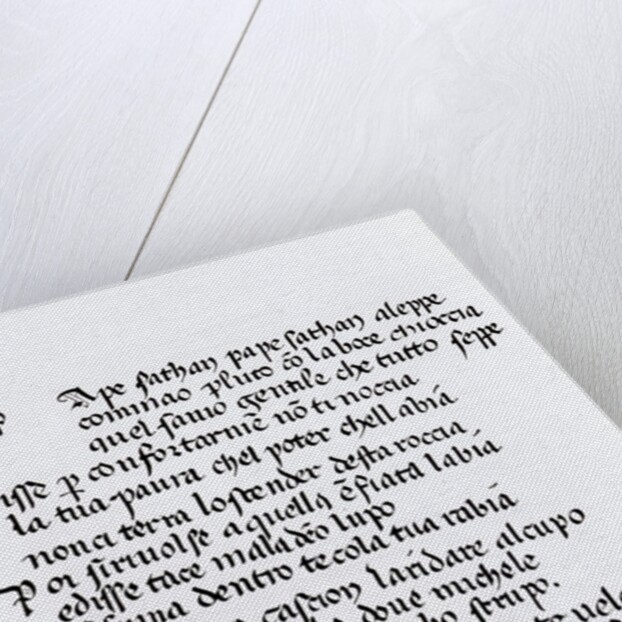 P Ape sathan pape sathan aleppe
cominao pluto cō la boce chioccia
quel sauio gentile che tutto seppe
isse p confortarmē nō ti noccia
la tua paura chel poter chelli abiā
non ci terra lo scender desta roccia
Poi si riuolse a quella ēfiata labiā
edisse tace maladeō lupo
suma dentro te cola tua rabiā
cascion laridare al cupo
doue michele
strupo.